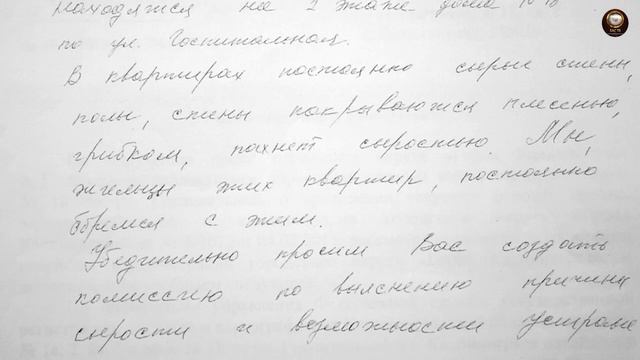 находятся на 1 этаже дома №
по ул. Госпитальная.
В квартирах постоянно сырые стены,
полы, стены покрываются плесенью,
грибком, пахнет сыростью. Мы,
жильцы этих квартир, постоянно
боремся с этим.
Убедительно просим Вас создать
комиссию по выяснению причины
сырости и возможности устране